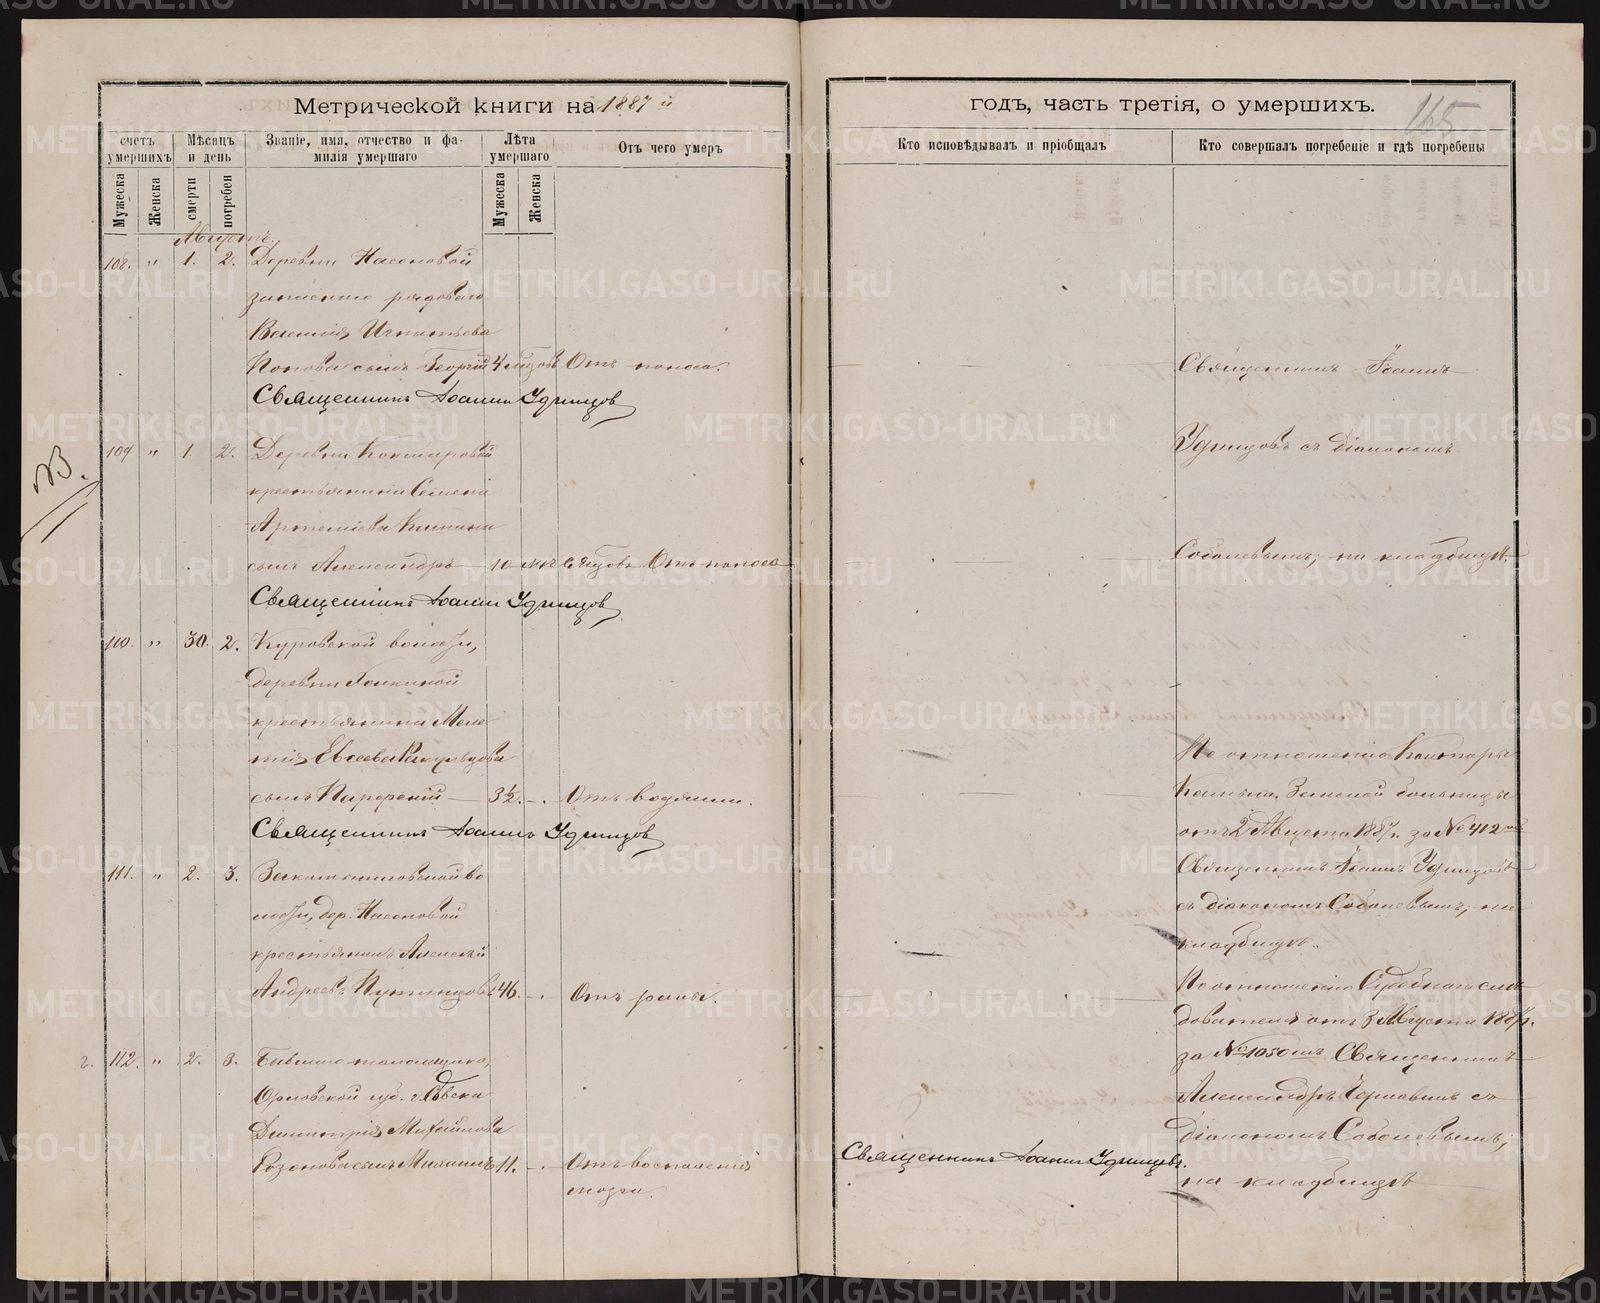 Метрической книги на 1887 й
годъ, часть третія, о умершихъ.
165
счетъ умершихъ
Мѣсяцъ и день
Званіе, имя, отчество и фамилія умершаго
Лѣта умершаго
Отъ чего умеръ
Кто исповѣдывалъ и пріобщалъ
Кто совершалъ погребеніе и гдѣ погребены
Мужеска
Женска
смерти
погребен
Мужеска
Женска
Августъ.
108. " 1. 2. Деревни Насоновой
запаснаго рядоваго
Василія Игнатьева
Попова сынъ Георгій 4 Отъ поноса.
Священникъ Іоаннъ Удинцов
109 " 1. 2. Деревни
крестьянина Семена
Артеміева
сынъ Александръ 10 Отъ поноса
Священникъ Іоаннъ Удинцов
110. " 30. 2. Куровской волости,
деревни
крестьянина Меле
тія Евсеева
сынъ Парфеній 3½. Отъ водянки.
Священникъ Іоаннъ Удинцов
111. " 2. 3.
лости, дер. Насоновой
крестьянинъ Алексѣй
Андреевъ 46. Отъ раны.
112. " 2. 3.
Орловской губ. г.
Димитрія Михайлова
сынъ 11. Отъ воспаленія
мозга.
Священникъ Іоаннъ
Удинцовъ съ діакономъ
Соболевымъ, на кладбищѣ.
По отношенію Конторы
Земской больницы
отъ 2 Августа 1887 г. за № 412
Священникъ Іоаннъ Удинцовъ
съ діакономъ Соболевымъ, на
кладбищѣ.
По отношенію Судебнаго слѣ
дователя отъ 3 Августа 1887 г.
за № 1050 Священникъ
Александръ съ
діакономъ Соболевымъ,
на кладбищѣ
Священникъ Іоаннъ Удинцовъ.
METRIKI.GASO-URAL.RU